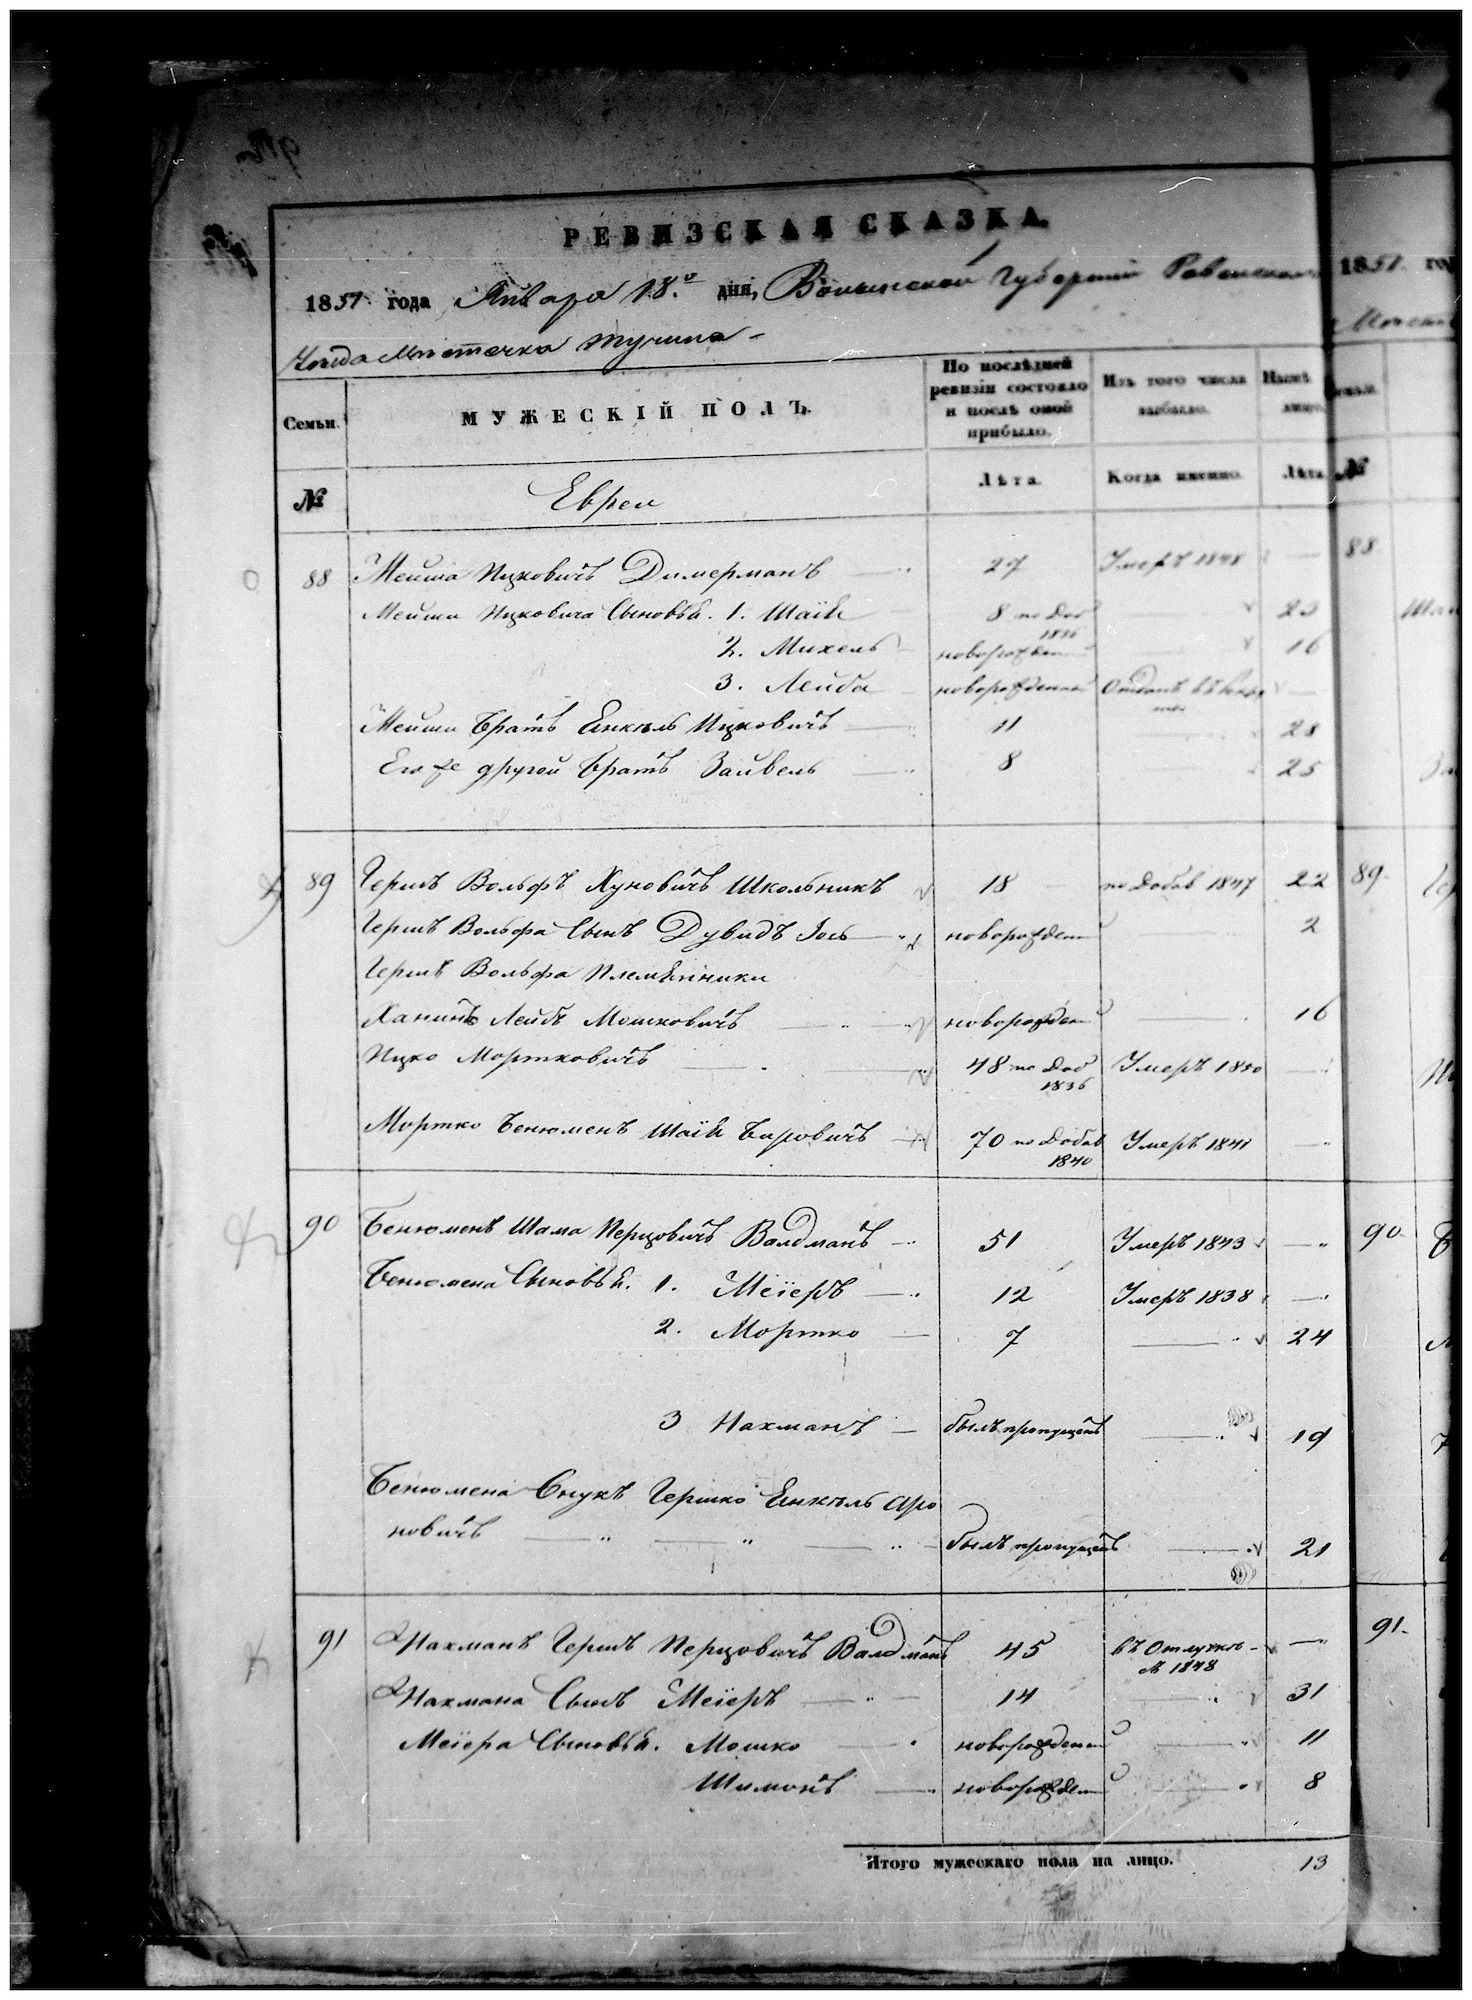 РЕВИЗСКАЯ СКАЗКА.
1851 года Января 18.º дня, Волынской Губернии Ровенского
Уезда Местечка Тучина
Семьи.
МУЖЕСКІЙ ПОЛЪ.
По послѣдней ревизіи состояло и послѣ оной прибыло.
Изъ того числа выбыло.
Нынѣ на лицо.
№
Евреи
Лѣта.
Когда именно.
Лѣта.
88 Мейша Ицковичъ Димерманъ 27 Умеръ 1848
Мейши Ицковича Сыновья. 1. Шаія 8 по Доб 1836 23
2. Михель новорожденный 16
3. Лейба новорожденный Отданъ въ
Мейши Братъ Енкель Ицковичъ 11 28
Его же другой Братъ Зайвель 8 25
89 Гершъ Вольфъ Хуновичъ Школьникъ 18 по Добав 1847 22
Гершъ Вольфа Сынъ Дувидъ Іось новорожден 2
Гершъ Вольфа Племянники
Ханинъ Лейбъ Мошковичъ новорожден 16
Ицко Мортковичъ 48 по Доб 1836 Умеръ 1850
Мортко Бенюменъ Шаія Беровичъ 70 по Добав 1840 Умеръ 1841
90 Бенюменъ Шама Перцовичъ Валдманъ 51 Умеръ 1843
Бенюмена Сыновья. 1. Меіеръ 12 Умеръ 1838
2. Мортко 7 24
3 Нахманъ былъ пропущенъ 19
Бенюмена Внукъ Гершко Енкель Аро
новичъ былъ пропущенъ 21
91 Нахманъ Гершъ Перцовичъ Валдманъ 45 въ Отлучке 1848
Нахмана Сынъ Меіеръ 14 31
Меіера Сыновья. Мошко новорожден 11
Шимонъ новорожден 8
Итого мужескаго пола на лицо. 13
1851 год
88
89.
90.
91.